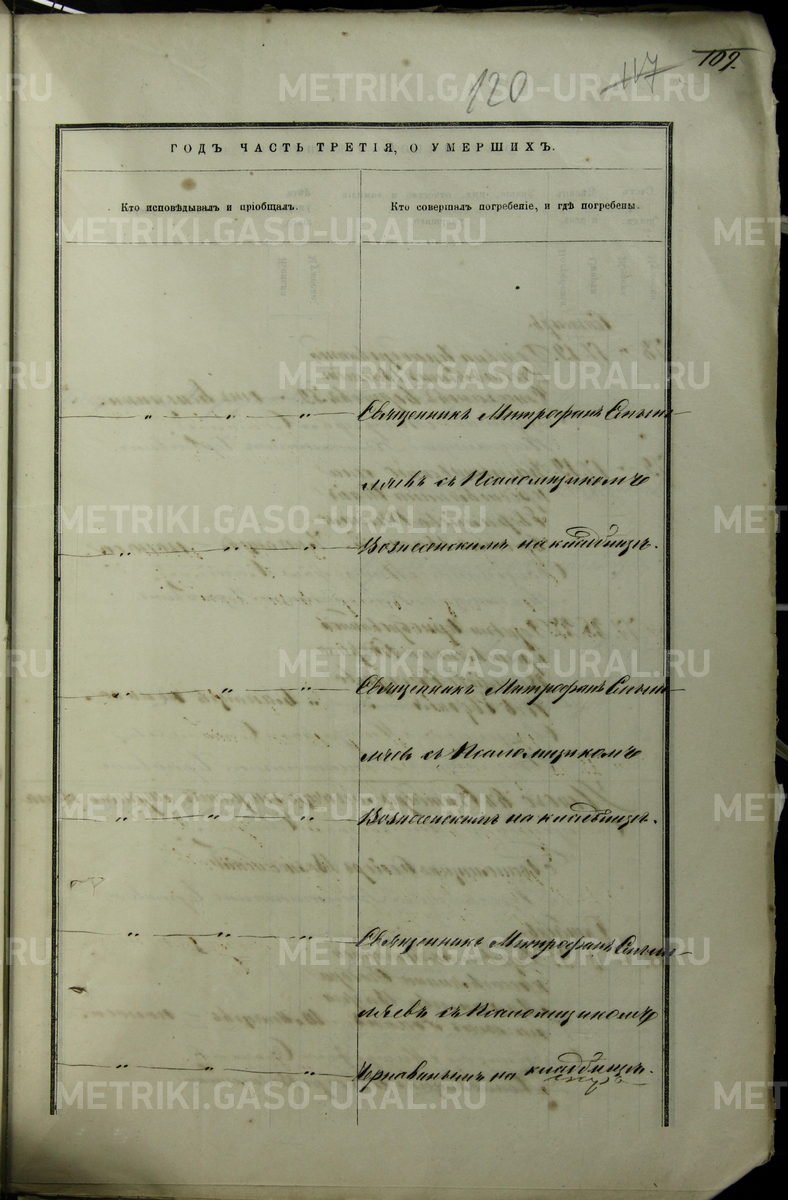 109.
117
120
ГОДЪ ЧАСТЬ ТРЕТІЯ, О УМЕРШИХЪ.
Кто исповѣдывалъ и пріобщалъ.
Кто совершалъ погребеніе, и гдѣ погребены.
„ „ „
Священникъ Митрофанъ
съ Псаломщикомъ
„ „ „
Вознесенскимъ на кладбищѣ.
„ „ „
Священникъ Митрофанъ
съ Псаломщикомъ
„ „ „
Вознесенскимъ на кладбищѣ.
„ „ „
Священникъ Митрофанъ
съ Псаломщикомъ
„ „ „
на кладбищѣ.
METRIKI.GASO-URAL.RU